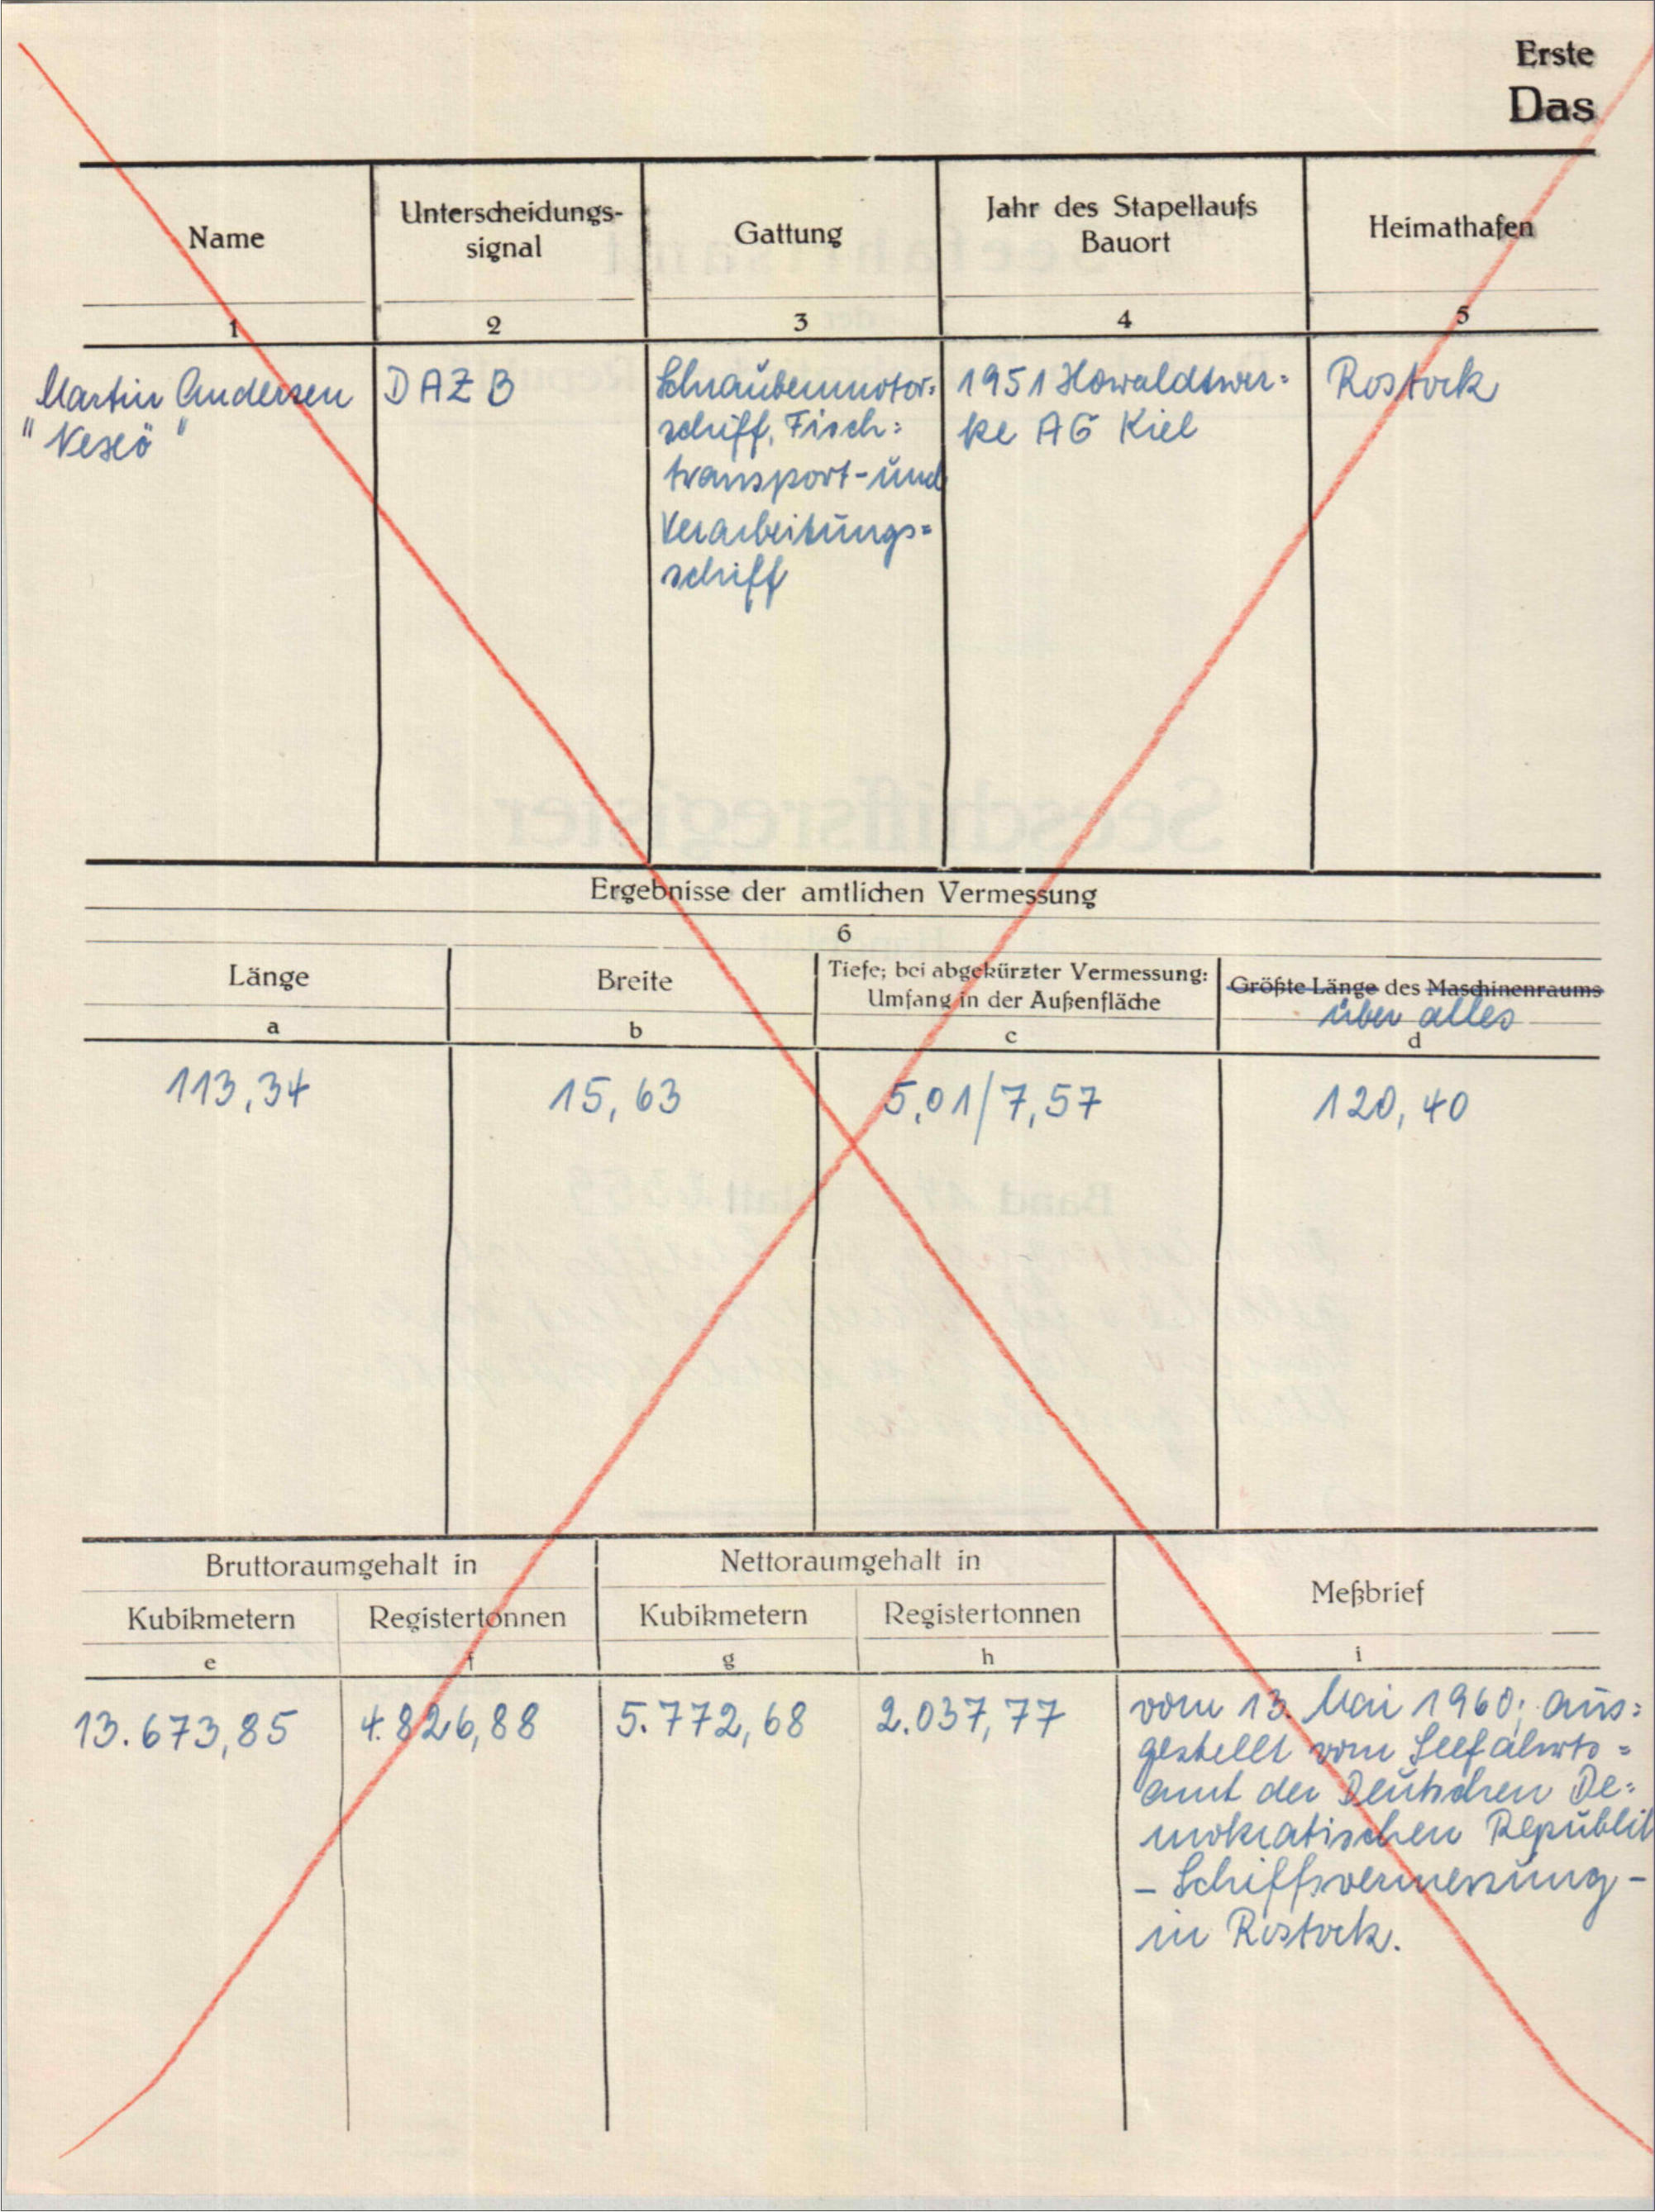 Erste
Das
Name
Unterscheidungs-
signal
Gattung
Jahr des Stapellaufs
Bauort
Heimathafen
1
2
3
4
5
Martin Andersen
"Nexö"
DAZB
Schraubenmotor=
schiff, Fisch=
transport- und
Verarbeitungs=
schiff
1951 Howaldtswer=
ke AG Kiel
Rostock
Ergebnisse der amtlichen Vermessung
6
Länge
Breite
Tiefe; bei abgekürzter Vermessung:
Umfang in der Außenfläche
Größte Länge des Maschinenraums
über alles
a
b
c
d
113,34
15,63
5,01/7,57
120,40
Bruttoraumgehalt in
Nettoraumgehalt in
Meßbrief
Kubikmetern
Registertonnen
Kubikmetern
Registertonnen
e
f
g
h
i
13.673,85
4.826,88
5.772,68
2.037,77
vom 13. Mai 1960; aus=
gestellt vom Seefahrts=
amt der Deutschen De=
mokratischen Republik
- Schiffsvermessung -
in Rostock.